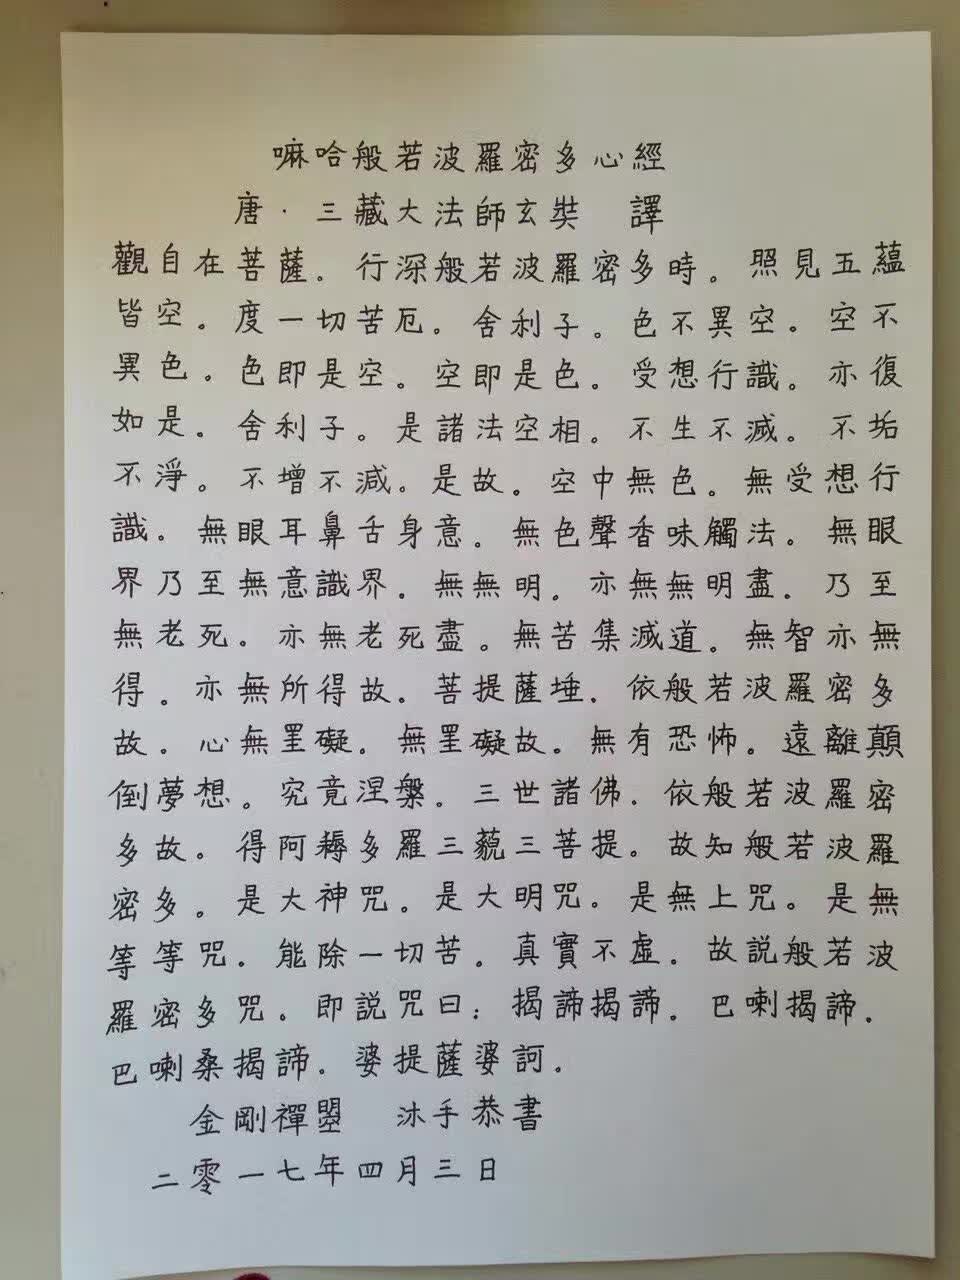 嘛哈般若波羅密多心經
唐·三藏大法師玄奘 譯
觀自在菩薩。行深般若波羅密多時。照見五蘊
皆空。度一切苦厄。舍利子。色不異空。空不
異色。色即是空。空即是色。受想行識。亦復
如是。舍利子。是諸法空相。不生不滅。不垢
不淨。不增不減。是故。空中無色。無受想行
識。無眼耳鼻舌身意。無色聲香味觸法。無眼
界乃至無意識界。無無明。亦無無明盡。乃至
無老死。亦無老死盡。無苦集滅道。無智亦無
得。亦無所得故。菩提薩埵。依般若波羅密多
故。心無罣礙。無罣礙故。無有恐怖。遠離顛
倒夢想。究竟涅槃。三世諸佛。依般若波羅密
多故。得阿耨多羅三藐三菩提。故知般若波羅
密多。是大神咒。是大明咒。是無上咒。是無
等等咒。能除一切苦。真實不虛。故説般若波
羅密多咒。即説咒曰：揭諦揭諦。巴喇揭諦．
巴喇桑揭諦．婆提薩婆訶．
金剛禪盟 沐手恭書
二零一七年四月三日